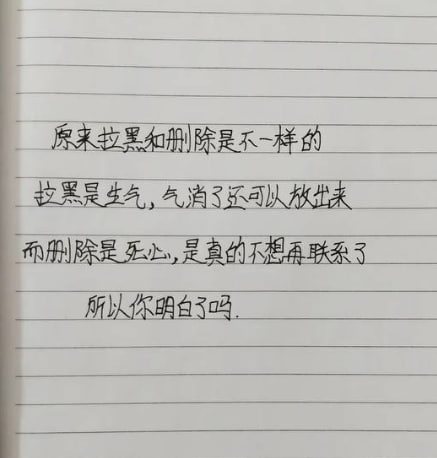 原来拉黑和删除是不一样的
拉黑是生气,气消了还可以放出来
而删除是死心,是真的不想再联系了
所以你明白了吗.